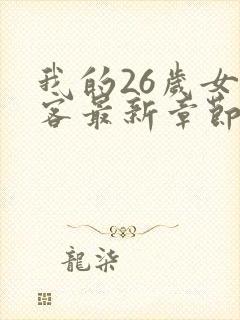 我的26歲女
客最新章節
龍柒